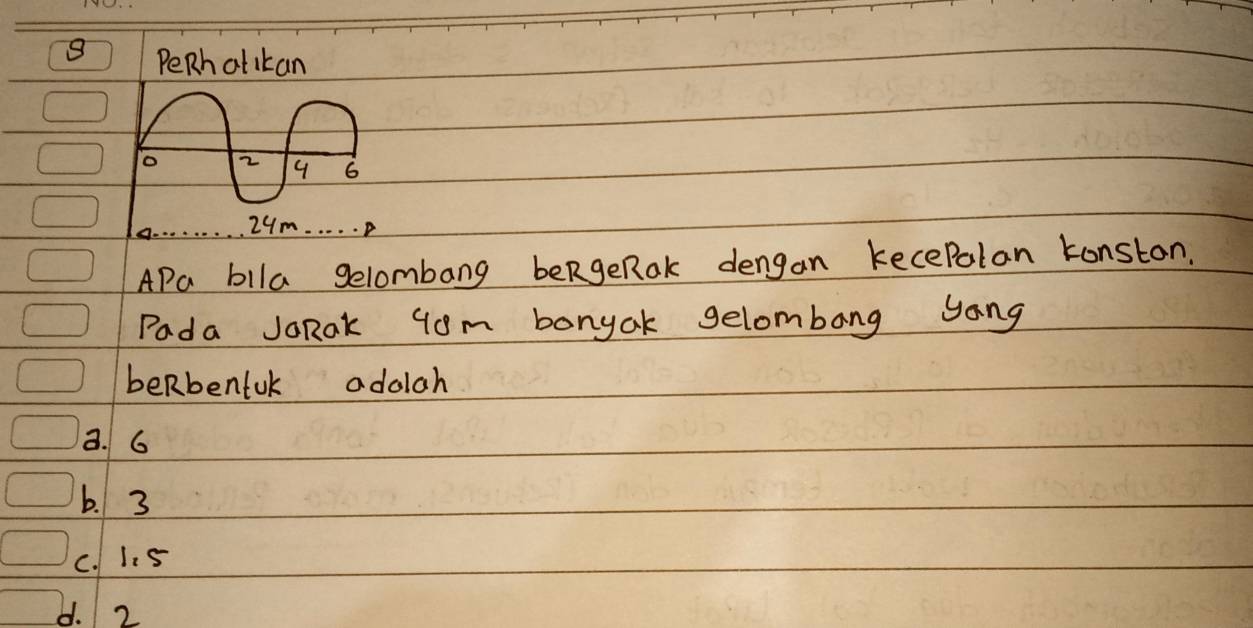 No..
9 Perhatikan
0 2 4 6
24m
Apa bila gelombang bergerak dengan kecepatan konstan.
Pada Jarak 48m banyak gelombang yang
berbentuk adalah
a. 6
b. 3
c. 1.5
d. 2